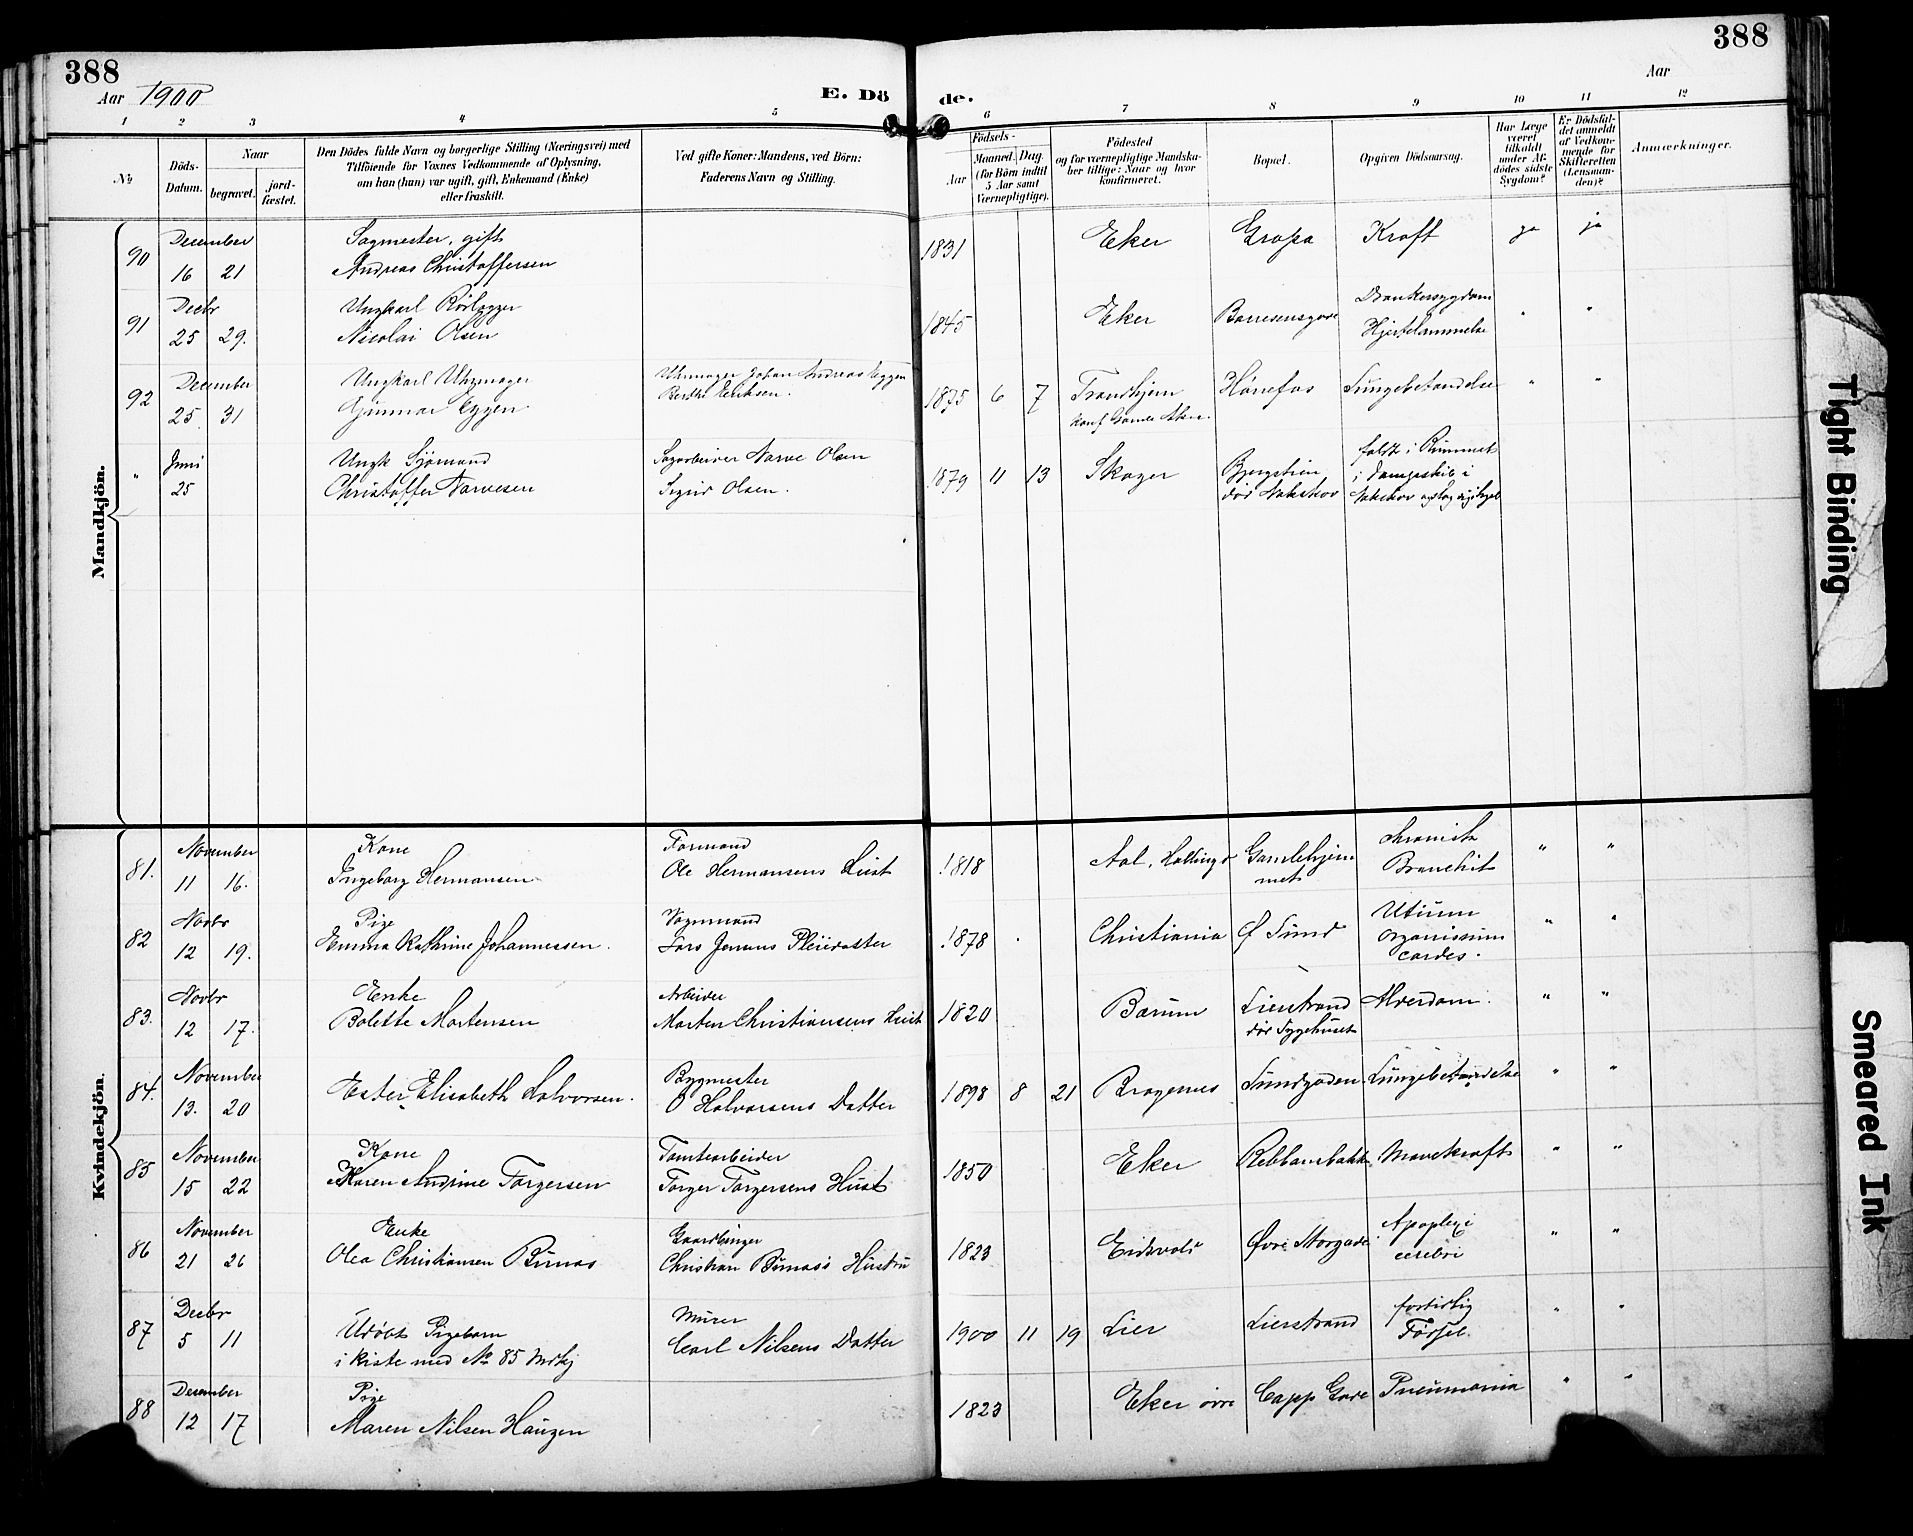 388
388
Aar 1900
E. Dö de.
Aar
1 2 3 4 5 6 7 8 9 10 11 12
№
Döds-
Datum.
Naar
begravet.
jord-
fæstet.
Den Dödes fulde Navn og borgerlige Stilling (Næringsvei) med
Tilföiende for Voxnes Vedkommende af Oplysning,
om han (hun) var ugift, gift, Enkemand (Enke)
eller fraskilt.
Ved gifte Koner: Mandens, ved Börn:
Faderens Navn og Stilling.
Födsels-
Aar
Maaned. Dag.
(for Börn indtil
5 Aar samt
Værnepligtige).
Födested
og for værnepligtige Mandska-
ber tillige: Naar og hvor
konfirmeret.
Bopæl.
Opgiven Dödsaarsag.
Har Læge
været
tilkaldt
under Af-
dödes sidste
Sygdom?
Er Dödsfal-
det anmeldt
af Vedkom-
mende for
Skifteretten
(Lensman-
den)?
Anmærkninger.
Mandkjön.
90 December 16 21
Sagmester, gift
Andreas Christoffersen
1831 Eker Kræft ja ja
91 Decbr 25 29.
Ungkarl Rörlegger
Nicolai Olsen
1845 Eker
Hjertelammelse " "
92 December 25 31
Ungkarl Uhrmager
Gunnar Eggen
Uhrmager Johan Andreas Eggen
Berthe Eriksen.
1875 6 7 Trondhjem
konf. Gamle Aker.
Hönefos Lungebetændelse " "
" Juni 25
Ungk Sjömand
Christoffer Narvesen
Sagarbeider Narve Olsen
Sigrid Olsen.
1879 11 13 Skoger
Bjergstien
död Nakskov
faldt i Rummet
i Dampskib i
Nakskov
Kvindekjön.
81. November 11 16.
Kone
Ingeborg Hermansen
Formand
Ole Hermansens Hust
1818 Aal, Hallingd
Gamlehjem
met
chronisk
Bronchit " "
82 Novbr 12 19.
Pige
Emma Kathrine Johannessen.
Vognmand
Lars Jensens Pleiedatter
1878 Christiania Ø Sund
Vitium
organicum
cordis. " "
83. Novbr 12 17.
Enke
Bolette Mortensen
Arbeider
Morten Christiansens Hust
1820 Bærum
Lierstrand
död Sygehuset
Alderdom. " "
84. November 13. 20
Ester Elisabeth Halvorsen.
Bygmester
O Halvorsens Datter
1898 8 21 Bragernes Sundgaden Lungebetændelse " "
85 November 15 22
Kone
Karen Andrine Torgersen
Tomtearbeider
Torger Torgersens Hust
1850 Eker Rebbansbakk. Mavekræft " "
86 November 21 26
Enke
Olea Christiansen Burnas
Gaardbruger
Christian Burnas's Hustru
1823 Eidsvold Øvre Storgade
Apoplexi
cerebri " "
87 Decbr 5 11
Udöbt Pigebarn
i kiste med No 85 Mdkj
Murer
Carl Nilsens Datter
1900 11 19 Lier Lierstrand
fortidlig
Födsel. " "
88 December 12 17
Pige
Maren Nilsen Haugen
1823 Eker övre Capp Gade Pneumonia " "
Tight Binding
Smeared Ink